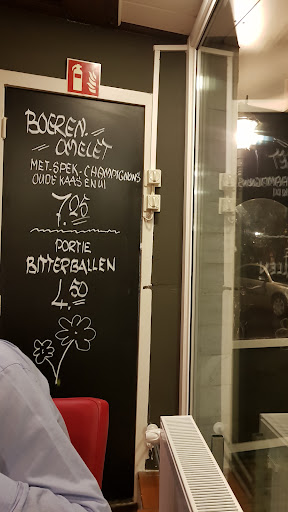 BOEREN
OMELET
MET. SPEK - CHAMPIGNONS
OUDE KAAS EN UI
7.25
PORTIE
BITTERBALLEN
4.50